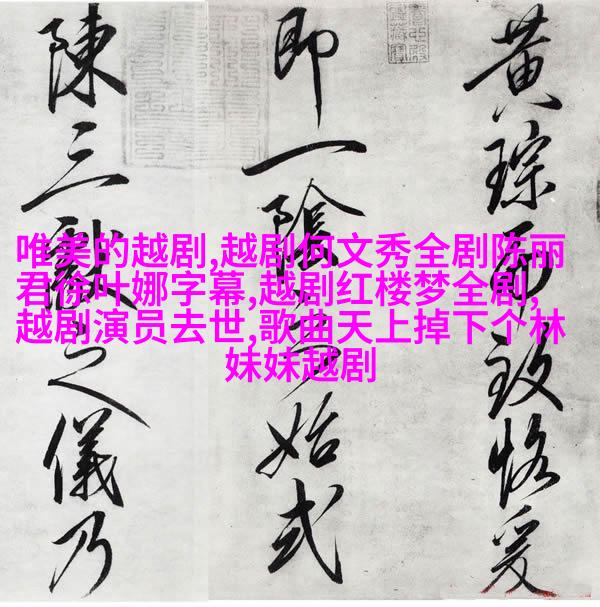 黄琮而致恪爰
即一陰始式
陳三獻之儀乃
唯美的越剧,越剧何文秀全剧陈丽
君徐叶娜字幕,越剧红楼梦全剧,
越剧演员去世,歌曲天上掉下个林
妹妹越剧